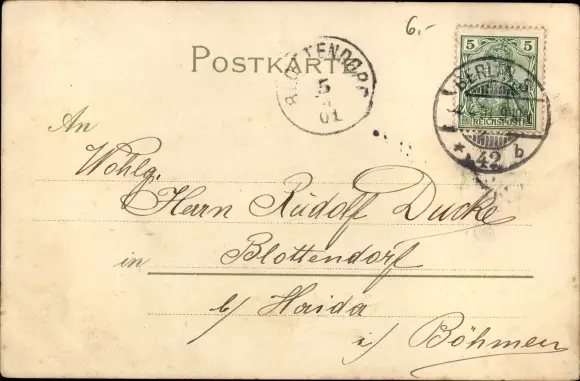 6.-
POSTKARTE
5
REICHSPOST
BERLIN S
42 b
BLOTTENDORF
5
01
An
Wohlg.
Herrn Rudolf Ducke
in Blottendorf
b/ Haida
i/ Böhmen